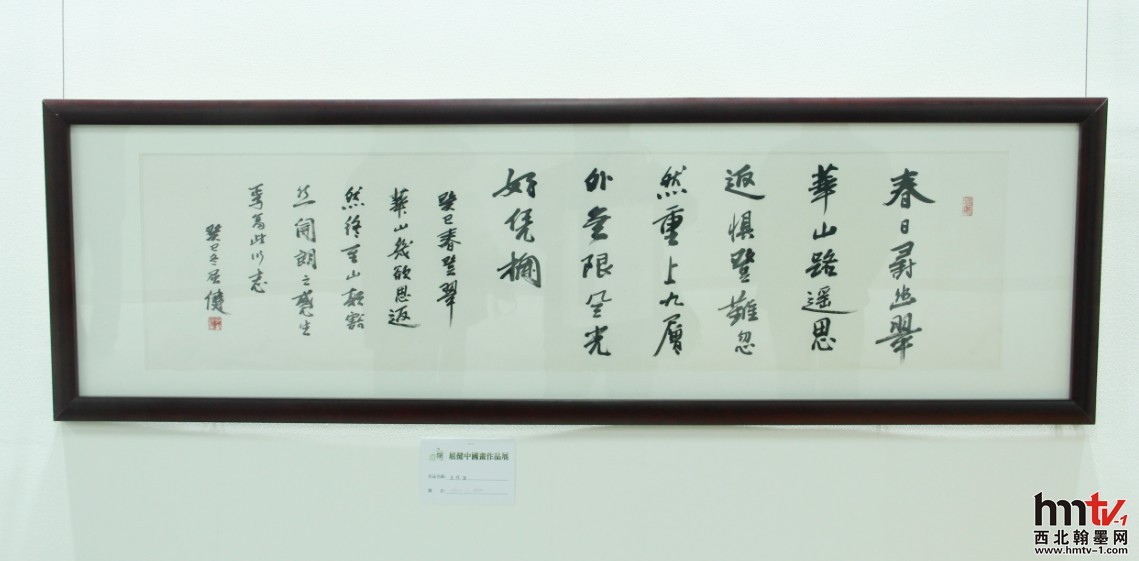 春日尋幽翠
華山路遥思
返惧登難忽
然重上九層
外無限風光
好凭欄
癸巳春登翠
華山幾欲思返
然終至山巔豁
然開朗之感生
焉為此以志
癸巳冬屈健
屈健中國畫作品展
hmtv-1
西北翰墨网
www.hmtv-1.com